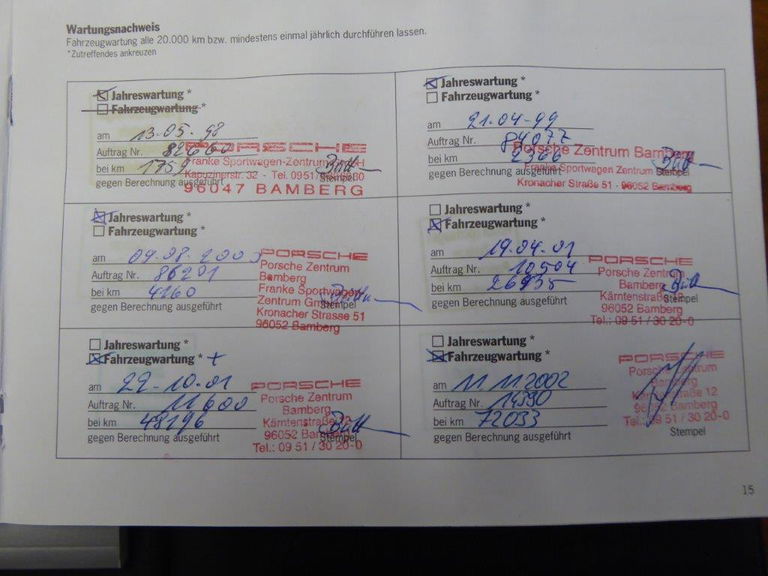 Wartungsnachweis
Fahrzeugwartung alle 20.000 km bzw. mindestens einmal jährlich durchführen lassen.
*Zutreffendes ankreuzen
Jahreswartung *
Fahrzeugwartung *
am 13.05.98
Auftrag Nr. 82660
bei km
gegen Berechnung ausgeführt
Stempel
PORSCHE
Franke Sportwagen-Zentrum GmbH
Kapuzinerstr. 32 - Tel. 0951/
96047 BAMBERG
Jahreswartung *
Fahrzeugwartung *
am 21.04-99
Auftrag Nr. 84077
bei km 2366
gegen Berechnung ausgeführt
Stempel
Porsche Zentrum Bamberg
Franke Sportwagen Zentrum
Kronacher Straße 51 - 96052 Bamberg
Jahreswartung *
Fahrzeugwartung *
am 09.08.2000
Auftrag Nr. 86201
bei km 4160
gegen Berechnung ausgeführt
Stempel
PORSCHE
Porsche Zentrum
Bamberg
Franke Sportwagen
Zentrum GmbH
Kronacher Strasse 51
96052 Bamberg
Jahreswartung *
Fahrzeugwartung *
am 19.04.01
Auftrag Nr. 10504
bei km 26935
gegen Berechnung ausgeführt
Stempel
PORSCHE
Porsche Zentrum
Bamberg
Kärntenstraße 12
96052 Bamberg
Tel.: 09 51 / 30 20-0
Jahreswartung *
Fahrzeugwartung * +
am 22-10.01
Auftrag Nr. 11600
bei km 48196
gegen Berechnung ausgeführt
Stempel
PORSCHE
Porsche Zentrum
Bamberg
Kärntenstraße
96052 Bamberg
Tel.: 09 51 / 30 20-0
Jahreswartung *
Fahrzeugwartung *
am 11 11 2002
Auftrag Nr. 14990
bei km 72033
gegen Berechnung ausgeführt
Stempel
PORSCHE
Porsche Zentrum
Bamberg
Kärntenstraße 12
96052 Bamberg
Tel.: 09 51 / 30 20-0
15